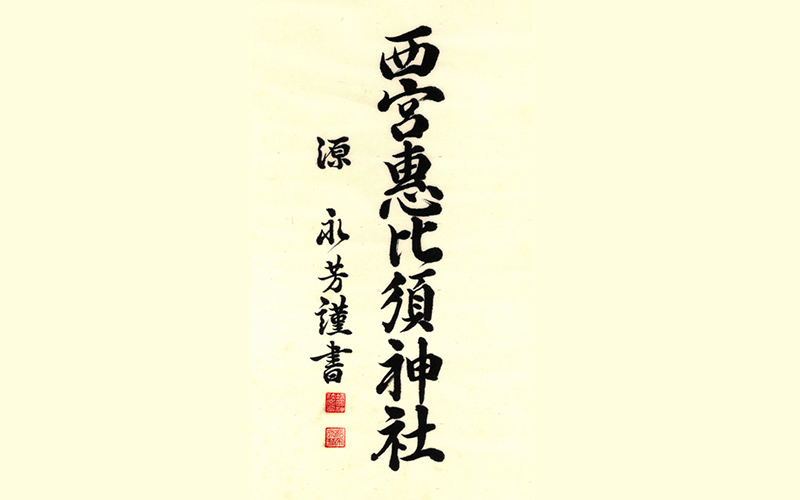 西宮惠比須神社
源 永芳謹書